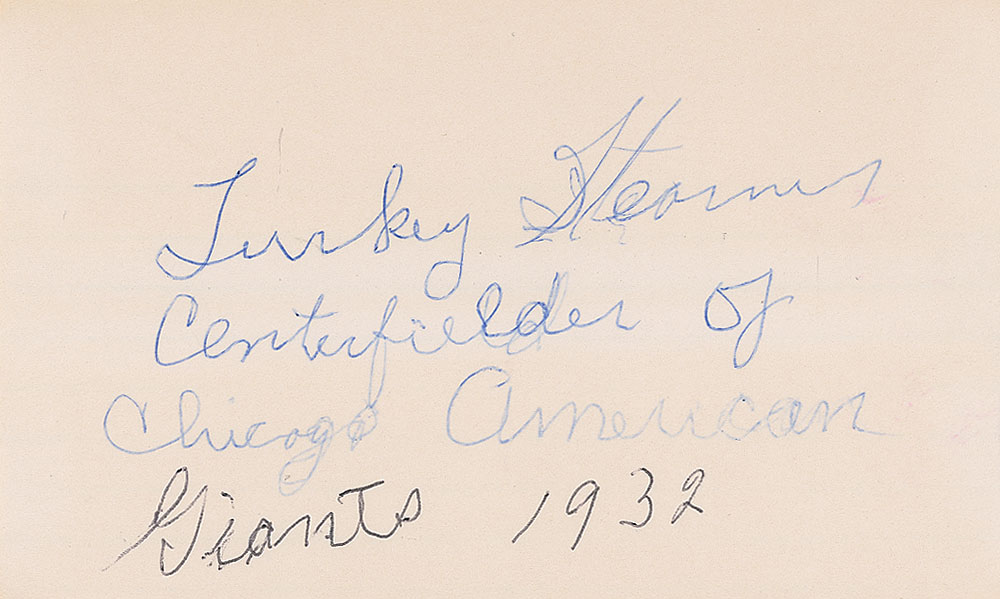 Turkey Stearnes
Centerfielder of
Chicago American
Giants 1932